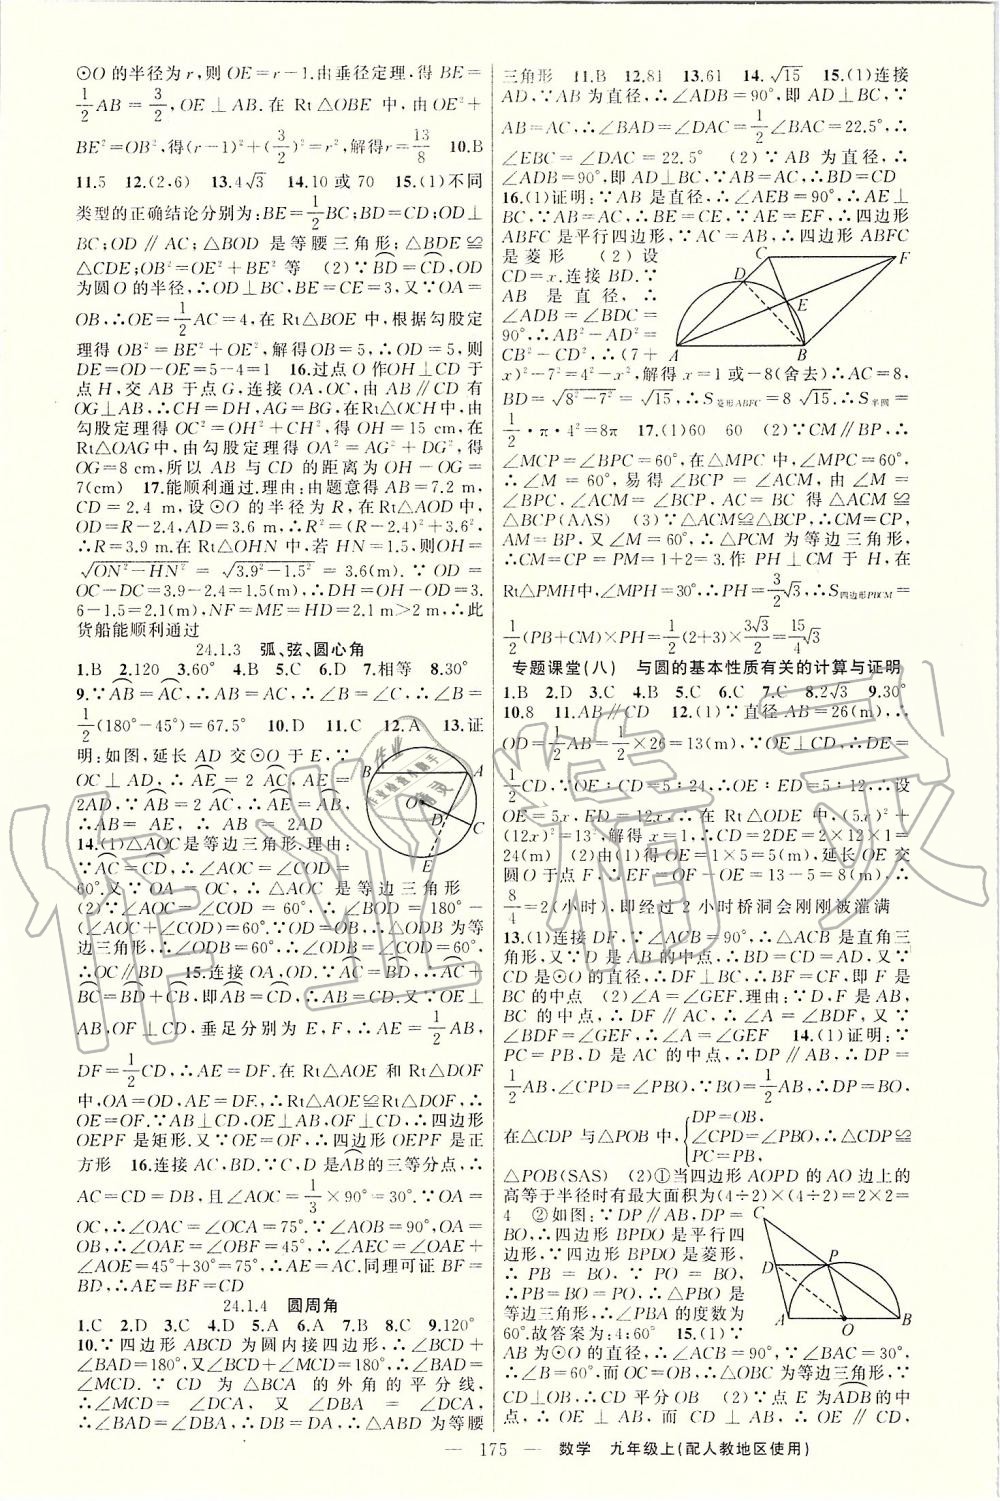 ⊙O 的半径为 r,则 OE=r−1.由垂径定理,得 BE=
1/2 AB = 3/2 ,OE⊥AB.在 Rt△OBE 中,由 OE²+
BE²=OB²,得(r−1)²+(3/2)²=r²,解得r=13/8 10.B
11.5 12.(2,6) 13.4√3 14.10 或 70 15.(1)不同
类型的正确结论分别为:BE=1/2 BC;BD=CD;OD⊥
BC;OD∥AC;△BOD 是等腰三角形;△BDE≌
△CDE;OB²=OE²+BE² 等 (2)∵BD=CD,OD
为圆 O 的半径,∴OD⊥BC,BE=CE=3,又∵OA=
OB,∴OE=1/2 AC=4,在 Rt△BOE 中,根据勾股定
理得 OB²=BE²+OE²,解得 OB=5,∴OD=5,则
DE=OD−OE=5−4=1 16.过点 O 作OH⊥CD 于
点 H,交 AB 于点 G,连接 OA,OC,由 AB∥CD 有
OG⊥AB,∴CH=DH,AG=BG,在Rt△OCH 中,由
勾股定理得 OC²=OH²+CH²,得 OH=15 cm,在
Rt△OAG 中,由勾股定理得 OA²=AG²+DG²,得
OG=8 cm,所以 AB 与 CD 的距离为 OH−OG=
7(cm) 17.能顺利通过.理由:由题意得 AB=7.2 m,
CD=2.4 m,设⊙O 的半径为 R,在 Rt△AOD 中,
OD=R−2.4,AD=3.6 m,∴R²=(R−2.4)²+3.6²,
∴R=3.9 m.在 Rt△OHN 中,若 HN=1.5,则OH=
√(ON²−HN²) = √(3.9²−1.5²) = 3.6(m).∵OD=
OC−DC=3.9−2.4=1.5(m),∴DH=OH−OD=3.
6−1.5=2.1(m),NF=ME=HD=2.1 m>2 m,∴此
货船能顺利通过
24.1.3 弧、弦、圆心角
1.B 2.120 3.60° 4.B 5.C 6.D 7.相等 8.30°
9.∵AB=AC,∴AB=AC,∴△ABC,∠B=∠C,∴∠B=
1/2(180°−45°)=67.5° 10.D 11.C 12.A 13.证
明:如图,延长 AD 交⊙O 于 E,∵
OC⊥AD,∴AE=2 AC,AE=
2AD,∵AB=2 AC,∴AE=AB,
∴AB=AE,∴AB=2AD
14.(1)△AOC是等边三角形.理由:
∵AC=CD,∴∠AOC=∠COD=
60°.又∵OA=OC,∴△AOC 是等边三角形
(2)∵∠AOC=∠COD=60°,∴∠BOD=180°−
(∠AOC+∠COD)=60°.∵OD=OB,∴△ODB 为等
边三角形,∴∠ODB=60°,∴∠ODB=∠COD=60°,
∴OC∥BD 15.连接 OA,OD.∵AC=BD,∴AC+
BC=BD+CB,即AB=CD,∴AB=CD.又∵OE⊥
AB,OF⊥CD,垂足分别为 E,F,∴AE=1/2 AB,
DF=1/2 CD,∴AE=DF.在 Rt△AOE 和 Rt△DOF
中,OA=OD,AE=DF,∴Rt△AOE≌Rt△DOF,∴
OE=OF.∵AB⊥CD,OE⊥AB,OF⊥CD,∴四边形
OEPF 是矩形.又∵OE=OF,∴四边形 OEPF 是正
方形 16.连接 AC,BD.∵C,D 是AB的三等分点,∴
AC=CD=DB,且∠AOC=1/3×90°=30°.∵OA=
OC,∴∠OAC=∠OCA=75°.∵∠AOB=90°,OA=
OB,∴∠OAE=∠OBF=45°,∴∠AEC=∠OAE+
∠AOE=45°+30°=75°.∴AE=AC.同理可证 BF=
BD,∴AE=BF=CD
24.1.4 圆周角
1.C 2.D 3.C 4.D 5.A 6.A 7.B 8.C 9.120°
10.∵四边形 ABCD 为圆内接四边形,∴∠BCD+
∠BAD=180°,又∠BCD+∠MCD=180°,∴∠BAD=
∠MCD.∵CD 为△BCA 的外角的平分线,
∴∠MCD=∠DCA,又∠DBA=∠DCA,
∴∠BAD=∠DBA,∴DB=DA,∴△ABD 为等腰
三角形 11.B 12.81 13.61 14.√15 15.(1)连接
AD,∵AB 为直径,∴∠ADB=90°,即 AD⊥BC,∵
AB=AC,∴∠BAD=∠DAC=1/2∠BAC=22.5°,∴
∠EBC=∠DAC=22.5° (2)∵AB 为直径,∴
∠ADB=90°,即 AD⊥BC,∵AB=AC,∴BD=CD
16.(1)证明:∵AB 是直径,∴∠AEB=90°,∴AE⊥
BC,∵AB=AC,∴BE=CE,∵AE=EF,∴四边形
ABFC 是平行四边形,∵AC=AB,∴四边形 ABFC
是菱形 (2)设
CD=x.连接 BD.∵
AB 是直径,∴
∠ADB=∠BDC=
90°,∴AB²−AD²=
CB²−CD²,∴(7+
x)²−7²=4²−x²,解得 x=1 或−8(舍去)∴AC=8,
BD=√(8²−7²)=√15,∴S菱形ABFC=8√15.∴S半圆=
1/2·π·4²=8π 17.(1)60 60 (2)∵CM∥BP,∴
∠MCP=∠BPC=60°,在△MPC 中,∠MPC=60°,
∴∠M=60°,易得∠BCP=∠ACM,由∠M=
∠BPC,∠ACM=∠BCP,AC=BC 得△ACM≌
△BCP(AAS) (3)∵△ACM≌△BCP,∴CM=CP,
AM=BP,又∠M=60°,∴△PCM 为等边三角形,
∴CM=CP=PM=1+2=3.作 PH⊥CM 于 H,在
Rt△PMH中,∠MPH=30°,∴PH=3/2√3,∴S四边形PBCM=
1/2(PB+CM)×PH=1/2(2+3)×3√3/2=15/4√3
专题课堂(八) 与圆的基本性质有关的计算与证明
1.B 2.D 3.C 4.B 5.C 6.C 7.C 8.2√3 9.30°
10.8 11.AB∥CD 12.(1)∵直径 AB=26(m),∴
OD=1/2 AB=1/2×26=13(m),∵OE⊥CD,∴DE=
1/2 CD,∵OE∶CD=5∶24,∴OE∶ED=5∶12,∴设
OE=5x,ED=12x,∴在 Rt△ODE 中,(5x)²+
(12x)²=13²,解得 x=1,∴CD=2DE=2×12×1=
24(m) (2)由(1)得 OE=1×5=5(m),延长 OE 交
圆 O 于点 F,∴EF=OF−OE=13−5=8(m),∴
8/4=2(小时),即经过 2 小时桥洞会刚刚被灌满
13.(1)连接 DF,∵∠ACB=90°,∴△ACB 是直角三
角形,又∵D 是 AB 的中点,∴BD=CD=AD,又∵
CD 是⊙O 的直径,∴DF⊥BC,∴BF=CF,即 F 是
BC 的中点 (2)∠A=∠GEF.理由:∵D,F 是 AB,
BC 的中点,∴DF∥AC,∴∠A=∠BDF,又∵
∠BDF=∠GEF,∴∠A=∠GEF 14.(1)证明:∵
PC=PB,D 是 AC 的中点,∴DP∥AB,∴DP=
1/2 AB,∠CPD=∠PBO,∵BO=1/2 AB,∴DP=BO,
在△CDP 与△POB 中,{DP=OB, ∠CPD=∠PBO, PC=PB, ∴△CDP≌
△POB(SAS) (2)①当四边形 AOPD 的 AO 边上的
高等于半径时有最大面积为(4÷2)×(4÷2)=2×2=
4 ②如图:∵DP∥AB,DP=
BO,∴四边形 BPDO 是平行四
边形,∵四边形 BPDO 是菱形,
∴PB=BO,∵PO=BO,
∴PB=BO=PO,∴△PBO 是
等边三角形,∴∠PBA 的度数为
60°.故答案为:4;60° 15.(1)∵
AB 为⊙O 的直径,∴∠ACB=90°,∵∠BAC=30°,
∴∠B=60°,而 OC=OB,∴△OBC 为等边三角形,∵
CD⊥OB,∴CD 平分 OB (2)∵点 E 为ADB的中
点,∴OE⊥AB,而 CD⊥AB,∴OE∥CD,
— 175 — 数学 九年级上(配人教地区使用)
B
A
O
D
C
E
C
F
D
E
A
B
C
D
P
A
O
B
作业精灵